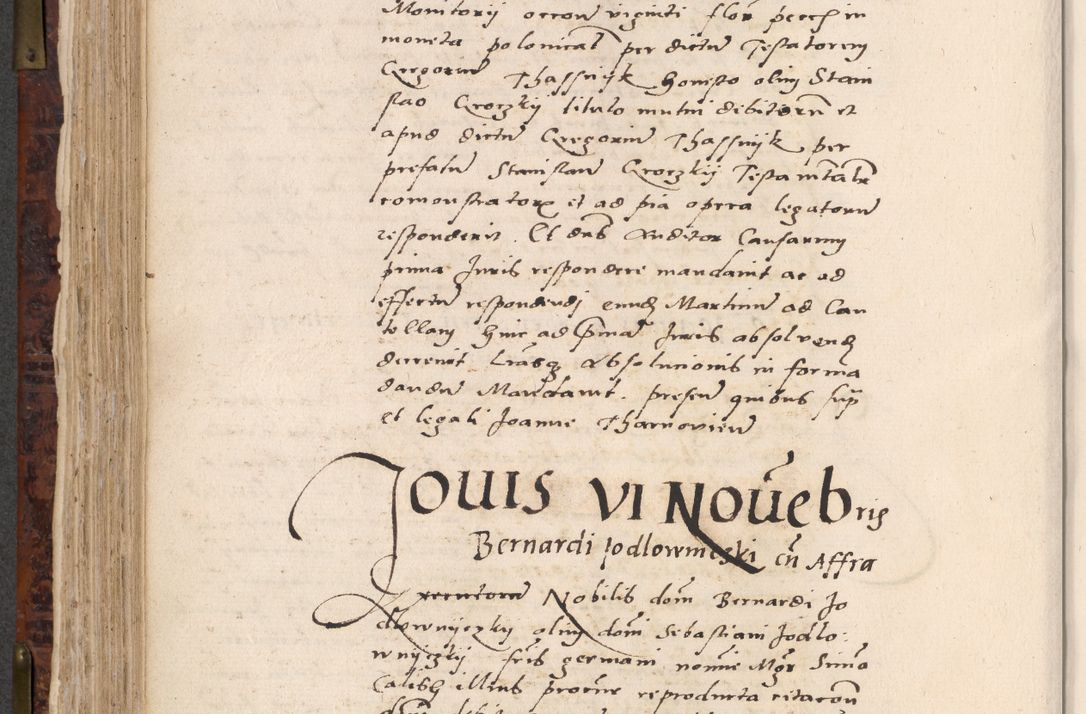 Monitorij occõn viginti flor̃ pecch in
moneta polonical̃ per dictũ Testatorem
Gregoriũ Thassnijk honesto olim Stani
slao Groczkij titulo mutui debitorũ et
apud dictũ Gregoriũ Thassnijk per
prefatũ Stanislaũ Groczkij Testamtalr̃
comonstratorꝝ et ad pia opera legatorũ
responderit. Et dñs Auditor Causarum
prima Juris respondere mandauit ac ad
effectũ respondendi eundẽ Martinũ ad Can
tellam huic ad p̃mã Juris absolvendũ
decreuit L̃rasqꝫ Absolucionis in forma
dandas Mandauit. presen̄ quibus sup̃
et legali Joanne Tharnovien̄
Jouis VI Nouẽbris
Bernardi Jodlownicski cũ Affra
Executorũ Nobilis dom̃ Bernardi Jo
dlownijczkij olim dom̃ Sebastiani Jodlo
wnijczkij fr̃is germani nomine Mgr̃ Simo
Calisch illius procur̃ reproducta citacõn